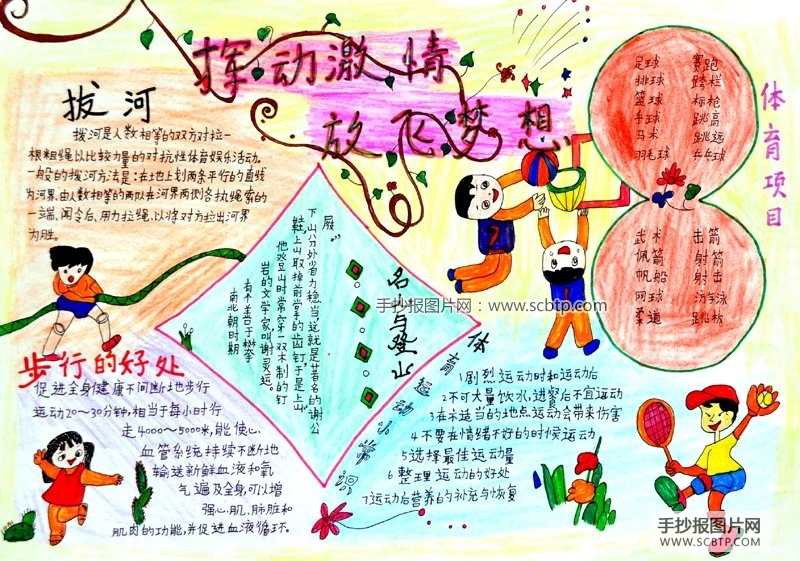 挥动激情
放飞梦想
拔河
拨河是人数相等的双方对拉一
根粗绳以比较力量的对抗性体育娱乐活动.
一般的拨河方法是:在地上划两条平行的直线
为河界.由人数相等的两队在河界两侧各执绳索的
一端,闻令后、用力拉绳,以将对方拉出河界
为胜。
体育项目
足球 赛跑
排球 跨栏
篮球 标枪
手球 跳高
马术 跳远
羽毛球 乒乓球
武术 击箭
佩箭 射箭
帆船 射击
网球 游泳
柔道 跳板
名山与登山
南北朝时期
有个善于攀
岩的文学家叫谢灵运。
他登山时常穿一双木制的钉
鞋,上山取掉前掌的齿钉,于是上山
下山分外省力稳当,这就是著名的谢公
屐…
手抄报图片网:www.scbtp.com
步行的好处
促进全身健康不间断地步行
运动20~30分钟,相当于每小时行
走4000~5000米,能使心
血管系统持续不断地
输送新鲜血液和氧
气遍及全身,可以增
强心肌、肺脏和
肌肉的功能,并促进血液循环.
体育运动小常识
1剧烈运动时和运动后
2不可大量饮水,进餐后不宜运动
3在不适当的地点运动会带来伤害
4不要在情绪不好的时候运动
5选择最佳运动量
6整理运动的好处
7运动后营养的补充与恢复
手抄报图片网
WWW.SCBTP.COM